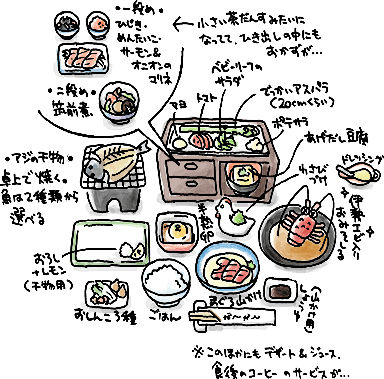 ・一段め・
ひじき・
めんたいこ・
サーモン&
オニオンの
マリネ
← 小さい茶だんすみたいに
なってて、ひき出しの中にも
おかずが…
・二段め・
筑前煮。
マヨ
トマト
ベビーリーフの
サラダ
でっかいアスパラ
(20cmくらい)
ポテサラ
あげだし豆腐
わさび
づけ
ドレッシング
・アジの干物・
卓上で焼く。
魚は2種類から
選べる
半熟卵
伊勢エビ入り
おみそしる
おろし
+レモン
(干物用)
おしんこ3種
ごはん
まぐろ山かけ
(山かけ用)
しょうゆ
※このほかにも デザート&ジュース、
食後のコーヒーのサービスが…